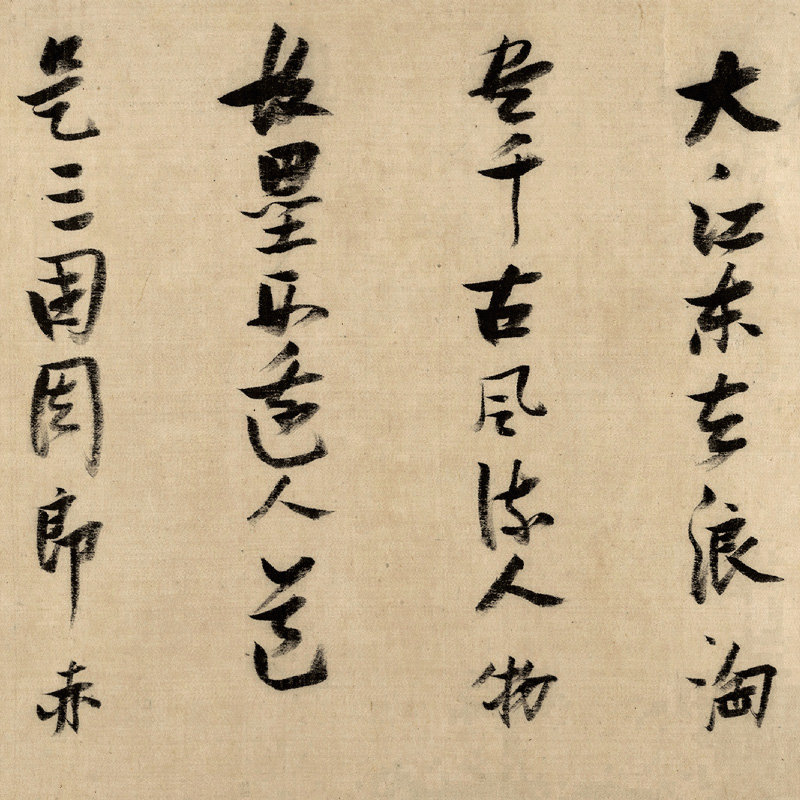 大江东去浪淘
尽千古风流人物
故垒西边人道
是三国周郎赤